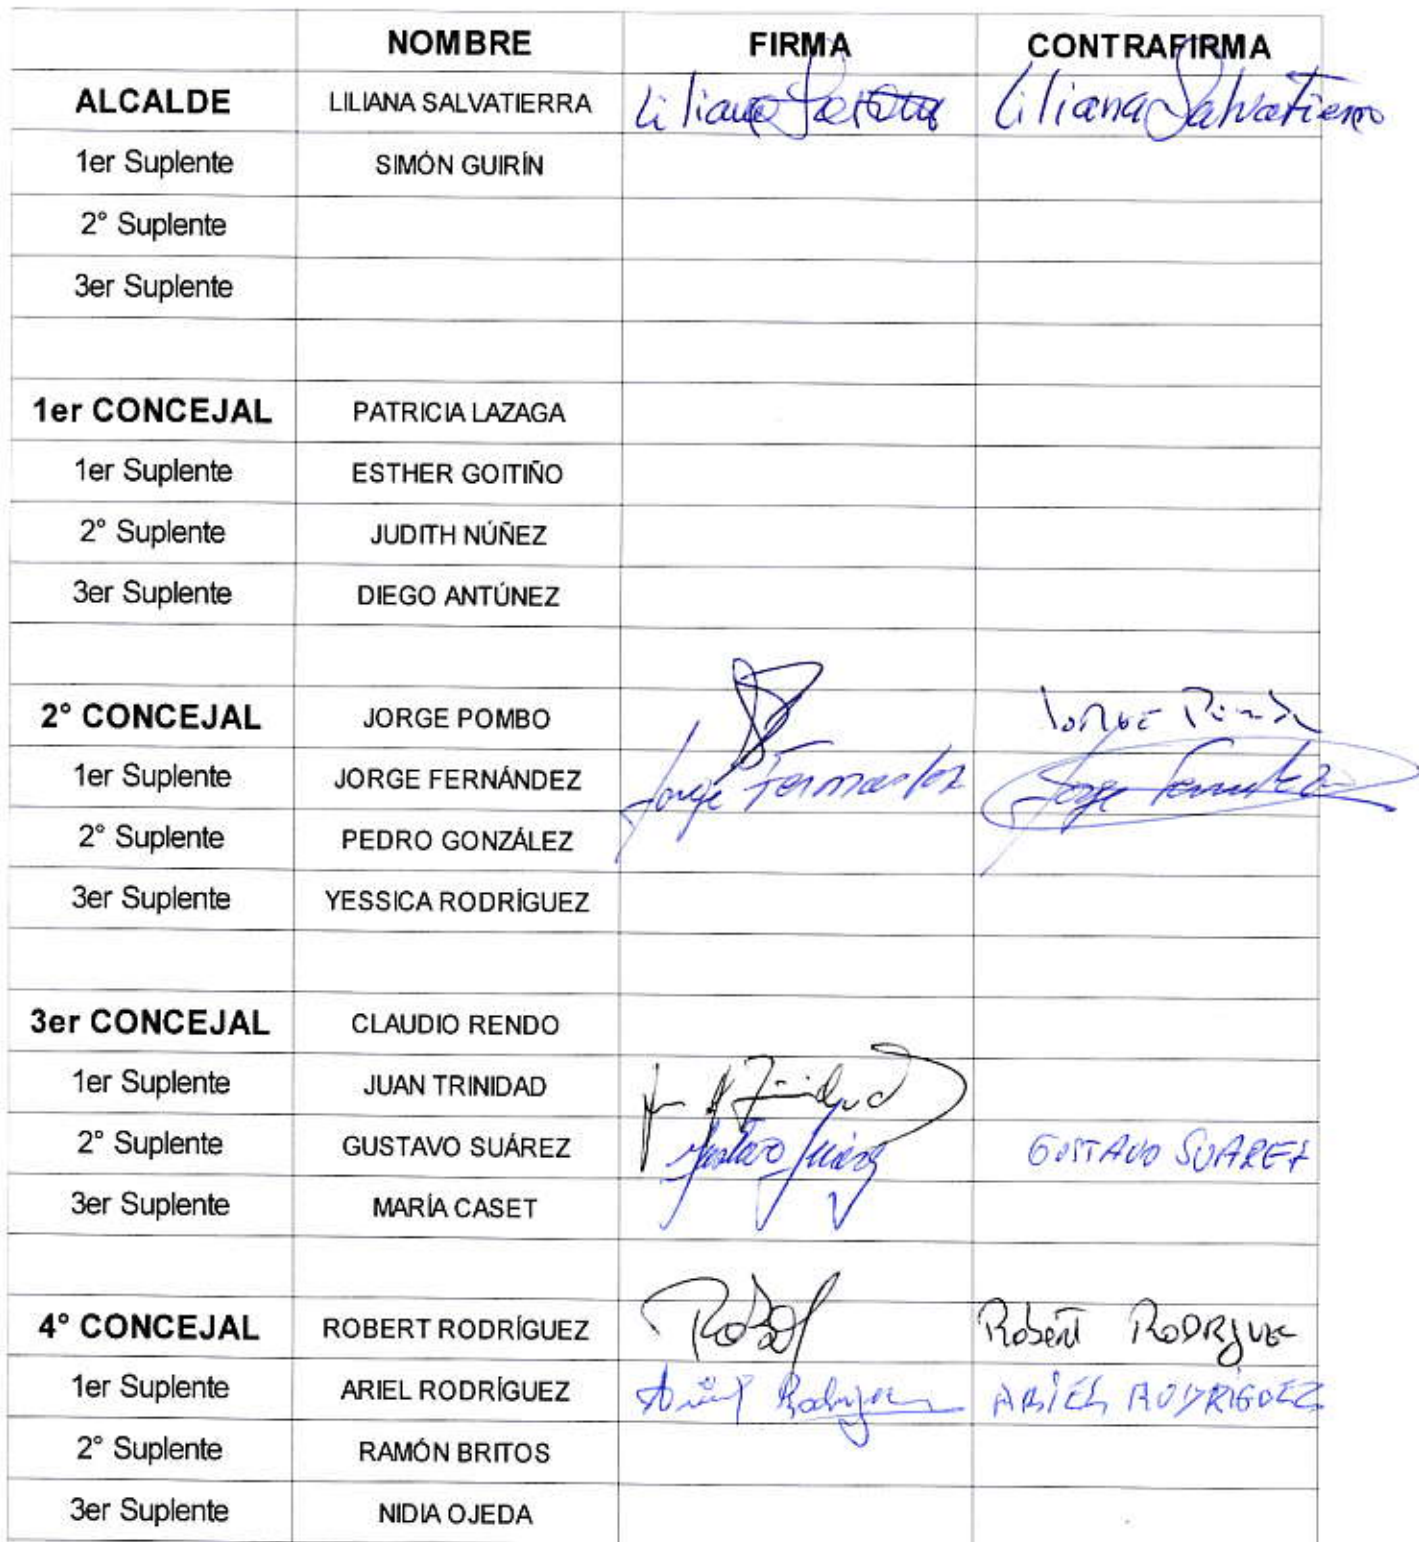 NOMBRE FIRMA CONTRAFIRMA
ALCALDE LILIANA SALVATIERRA Liliana Liliana Salvatierra
1er Suplente SIMÓN GUIRÍN
2° Suplente
3er Suplente
1er CONCEJAL PATRICIA LAZAGA
1er Suplente ESTHER GOITIÑO
2° Suplente JUDITH NÚÑEZ
3er Suplente DIEGO ANTÚNEZ
2° CONCEJAL JORGE POMBO JORGE
1er Suplente JORGE FERNÁNDEZ Jorge Fernandez Jorge Fernandez
2° Suplente PEDRO GONZÁLEZ
3er Suplente YESSICA RODRÍGUEZ
3er CONCEJAL CLAUDIO RENDO
1er Suplente JUAN TRINIDAD Trinidad
2° Suplente GUSTAVO SUÁREZ Gustavo Suárez GUSTAVO SUAREZ
3er Suplente MARÍA CASET
4° CONCEJAL ROBERT RODRÍGUEZ Robert RODRIGUEZ
1er Suplente ARIEL RODRÍGUEZ Ariel Rodriguez ARIEL RODRIGUEZ
2° Suplente RAMÓN BRITOS
3er Suplente NIDIA OJEDA